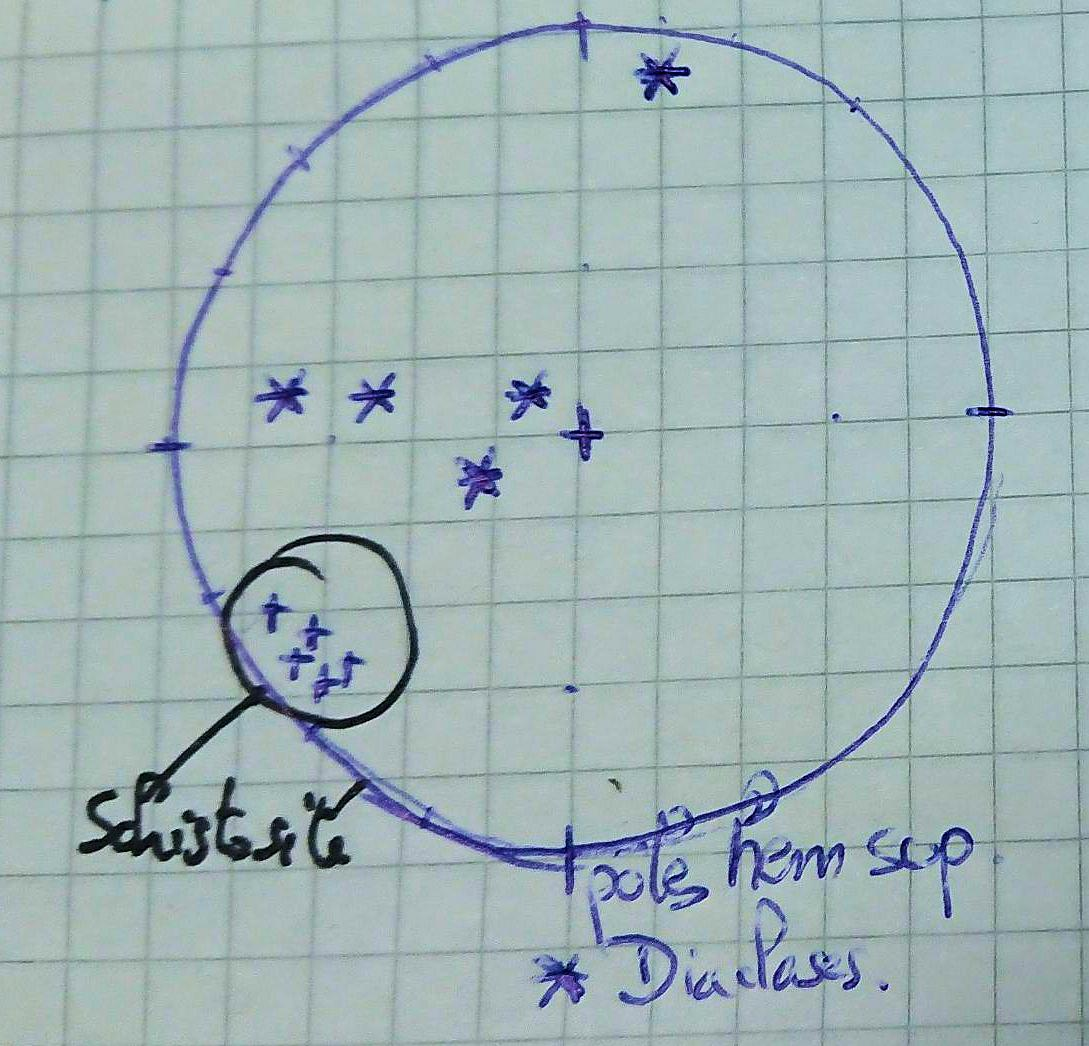 Schistosité
pôles hem sup.
* Diaclases.